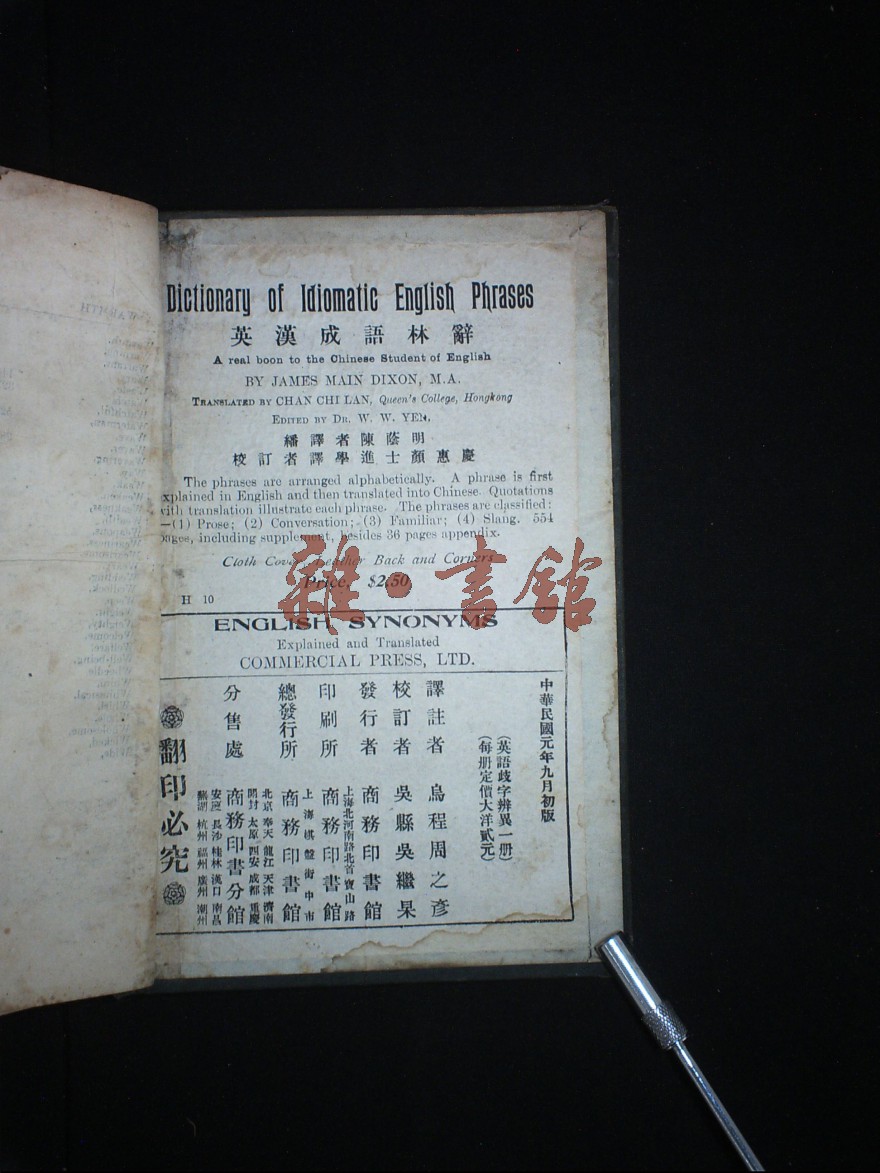 Dictionary of Idiomatic English Phrases
英漢成語林辭
A real boon to the Chinese Student of English
BY JAMES MAIN DIXON, M.A.
TRANSLATED BY CHAN CHI LAN, Queen's College, Hongkong
EDITED BY DR. W. W. YEN.
繙譯者陳蔭明
校訂者譯學進士顏惠慶
The phrases are arranged alphabetically. A phrase is first
explained in English and then translated into Chinese. Quotations
with translation illustrate each phrase. The phrases are classified:
—(1) Prose; (2) Conversation; (3) Familiar; (4) Slang. 554
pages, including supplement, besides 36 pages appendix.
Cloth Cover, Leather Back and Corners
Price, $2.50
雜·書館
H 10
ENGLISH SYNONYMS
Explained and Translated
COMMERCIAL PRESS, LTD.
中華民國元年九月初版
(英語歧字辨異一册)
(每册定價大洋貳元)
譯註者 烏程周之彥
校訂者 吳縣吳繼杲
發行者 商務印書館
上海北河南路北首寶山路
印刷所 商務印書館
上海棋盤街中市
總發行所 商務印書館
北京 奉天 龍江 天津 濟南
開封 太原 西安 成都 重慶
分售處 商務印書分館
安慶 長沙 桂林 漢口 南昌
蕪湖 杭州 福州 廣州 潮州
翻印必究